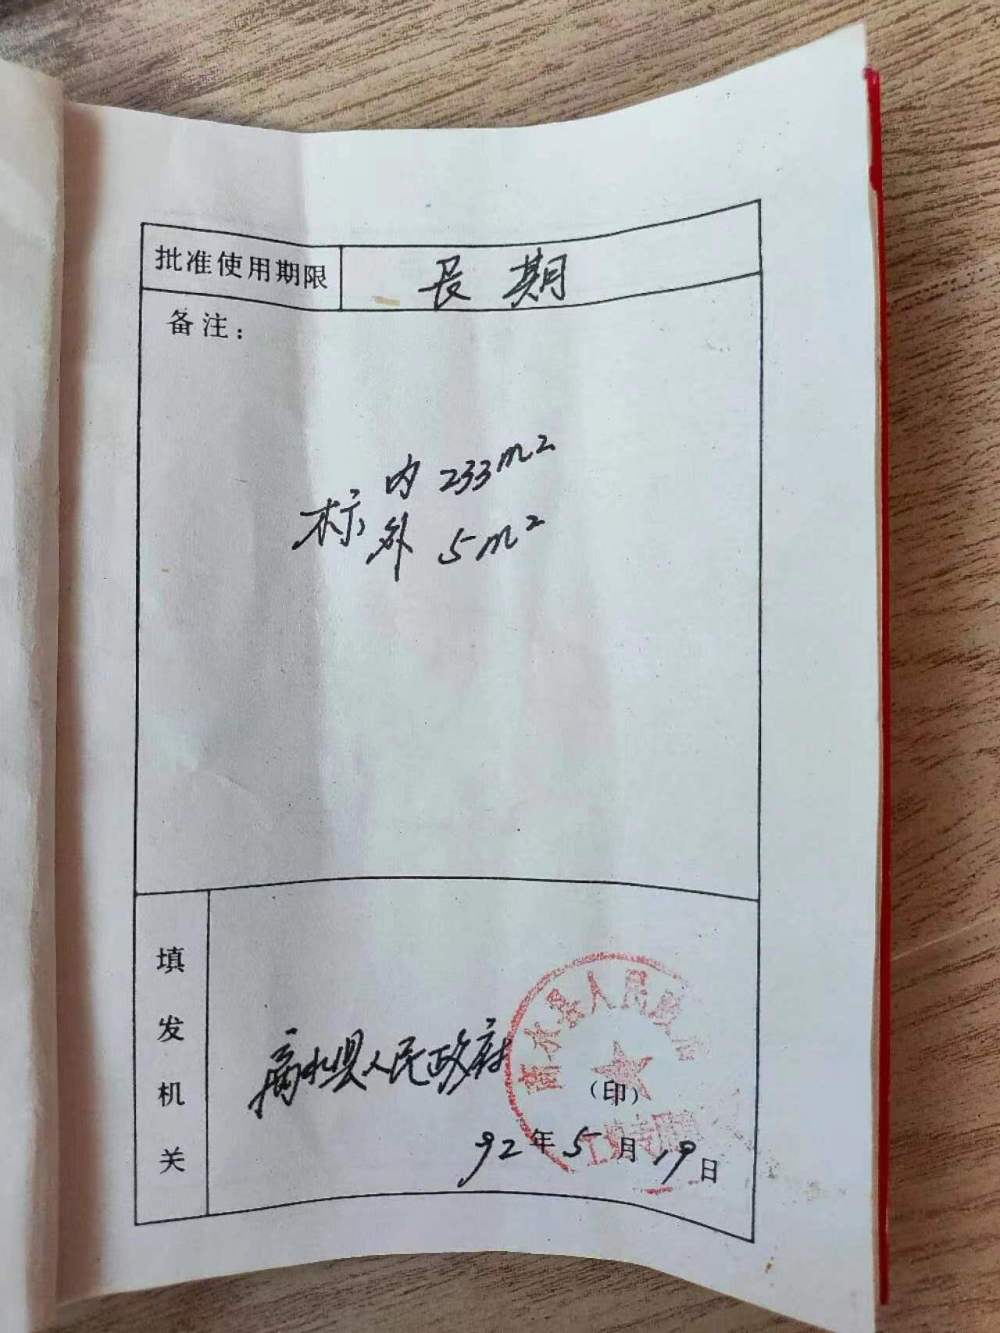 批准使用期限 长期
备注：
标内 233m²
外 5m²
填发机关
商水县人民政府
商水县人民政府
(印)
92年5月19日